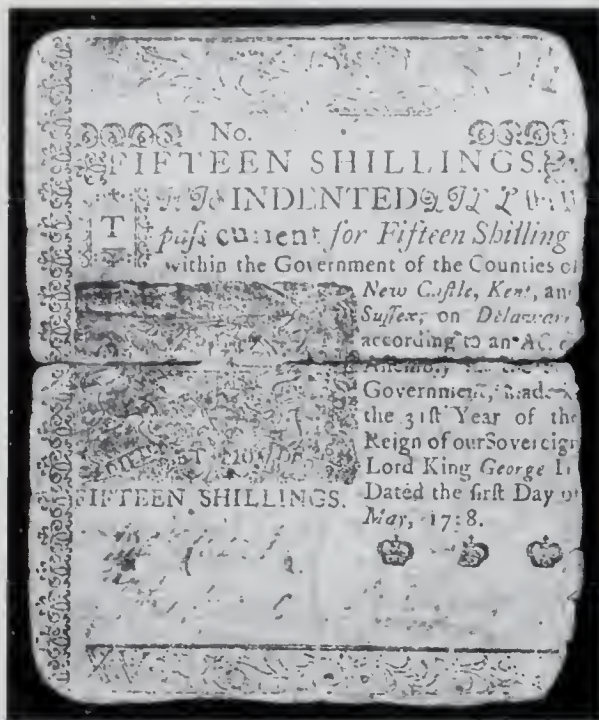 No.
FIFTEEN SHILLINGS.
INDENTED
T
paſs current for Fifteen Shilling
within the Government of the Counties of
New Caſtle, Kent, an
Suſſex, on Delaware
according to an AC
Government, made
the 31ſt Year of the
Reign of our Sovereign
Lord King George II
Dated the firſt Day of
May,
HONI MAL
FIFTEEN SHILLINGS.